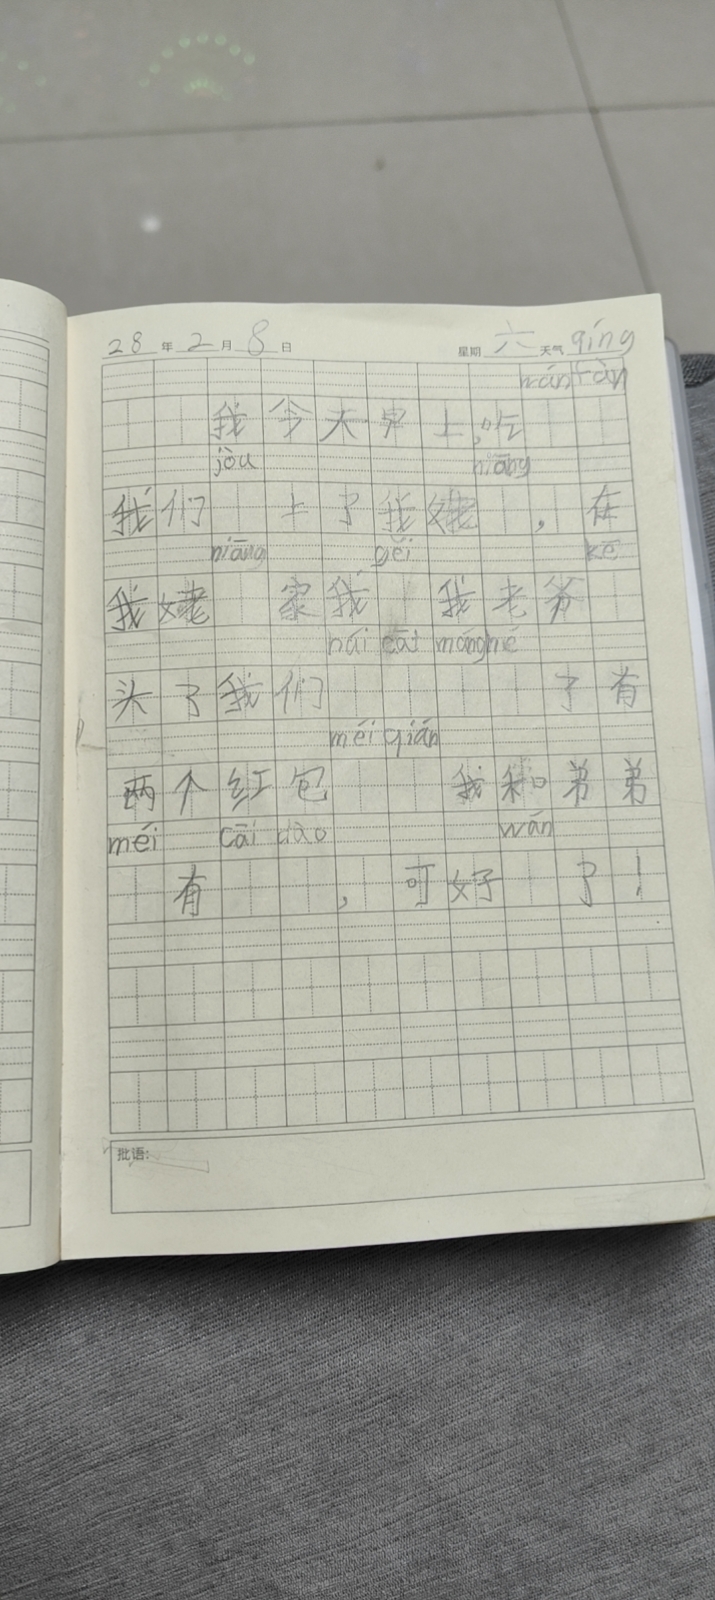 28年2月8日 星期六 天气qíng
wán fàn
我今天早上,吃
jòu niāng
我们上了我姥,在
niāng gěi kē
我姥家我我老爷
nái cāi máng hé
头了我们了有
méi qián
两个红包我和弟弟
méi cāi dào wán
有,可好了!
批语: